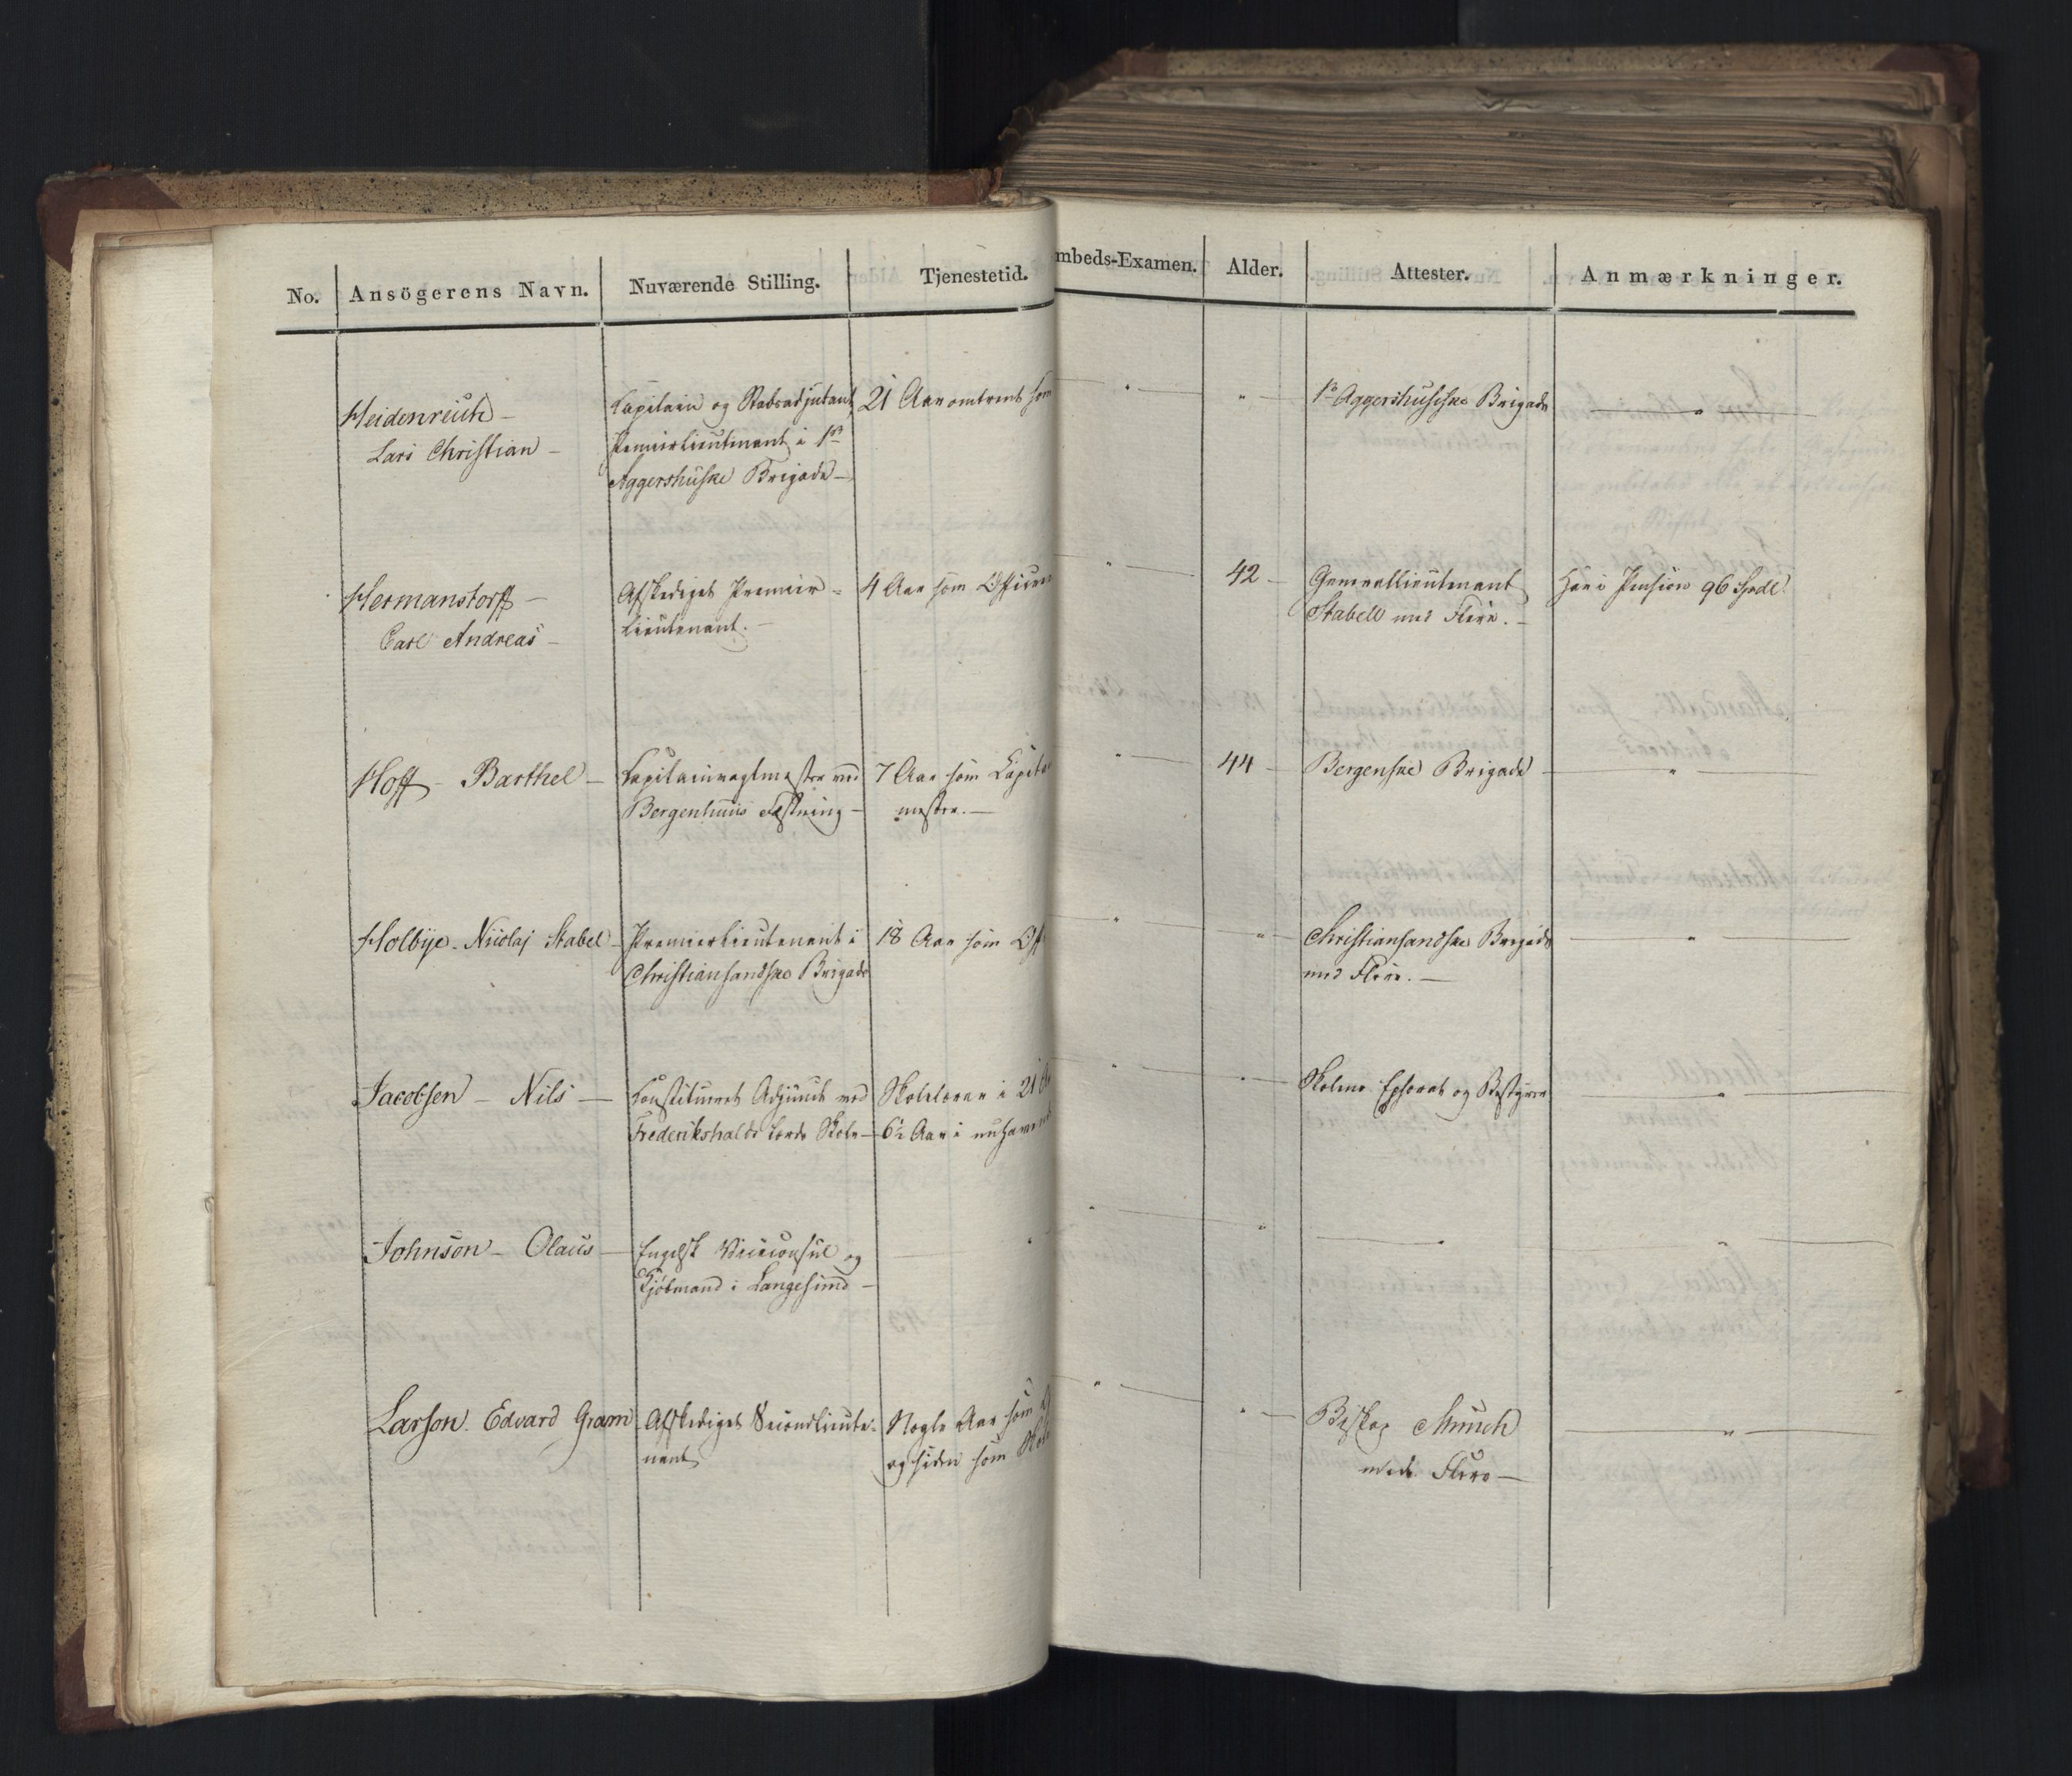 No. Ansögerens Navn. Nuværende Stilling. Tjenestetid. mbeds-Examen. Alder. Attester. Anmærkninger.
Heidenreich – Capitain og Stabsadjutant, 21 Aar omtrent som " " 1ste Aggershusiske Brigade "
Lars Christian – Premierlieutenant i 1ste
Aggershuske Brigade –
Hermanstorff – Afskediget Premier- 4 Aar som Officer " 42 – Generallieutenant Har i Pension 96 Spdl.
Carl Andreas – lieutenant. – Stabell med Flere. –
Hoff – Barthel – Capitainvagtmester ved 7 Aar som Capita " 44 – Bergenske Brigade – "
Bergenhuus Fæstning – mester. –
Holbye. Nicolaj Stabel – Premierlieutenant i 18 Aar som Off " " Christiansandske Brigade "
Christiansandske Brigade med Flere. –
Jacobsen – Nils – Constitueret Adjunct ved Skolelærer i 21 Aa " " – Skolens Ephorat og Bestyrer "
Frederikshalds lærde Skole – 6½ Aar i nuhavende
Johnson – Olaus – Engelsk Viceconsul og " " " " "
Kjöbmand i Langesund –
Larson. Edvard Gram Afskediget Secondlieute- Nogle Aar som " " – Biskop Munch "
nant og siden som Skole med Flere –